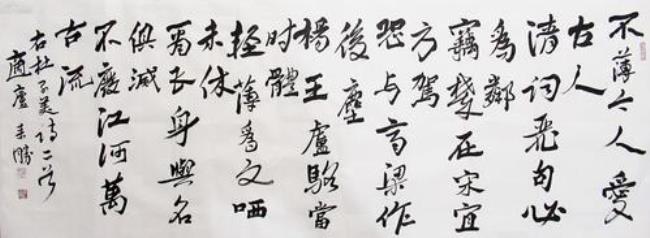 不薄今人愛
古人
清詞麗句必
為鄰
竊攀屈宋宜
方駕
恐与齊梁作
後塵
楊王盧駱當
时體
輕薄為文哂
未休
爾曹身與名
俱滅
不廢江河萬
古流
右杜子美詩二首
適廬